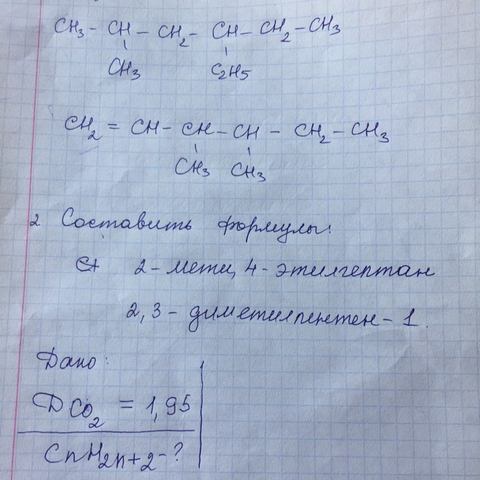 CH₃ - CH - CH₂ - CH - CH₂ - CH₃
CH₃ C₂H₅
CH₂ = CH - CH - CH - CH₂ - CH₃
CH₃ CH₃
2 Составить формулы:
2 - мети, 4 - этилгептан
2,3 - диметилпентен - 1.
Дано:
DCO₂ = 1,95
CnH2n+2 - ?